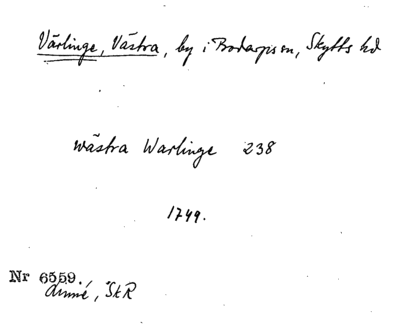 Värlinge, Västra, by i Bodarps sn, Skytts hd
wästra Warlinge 238
1749.
Nr 6559.
Linné, SkR